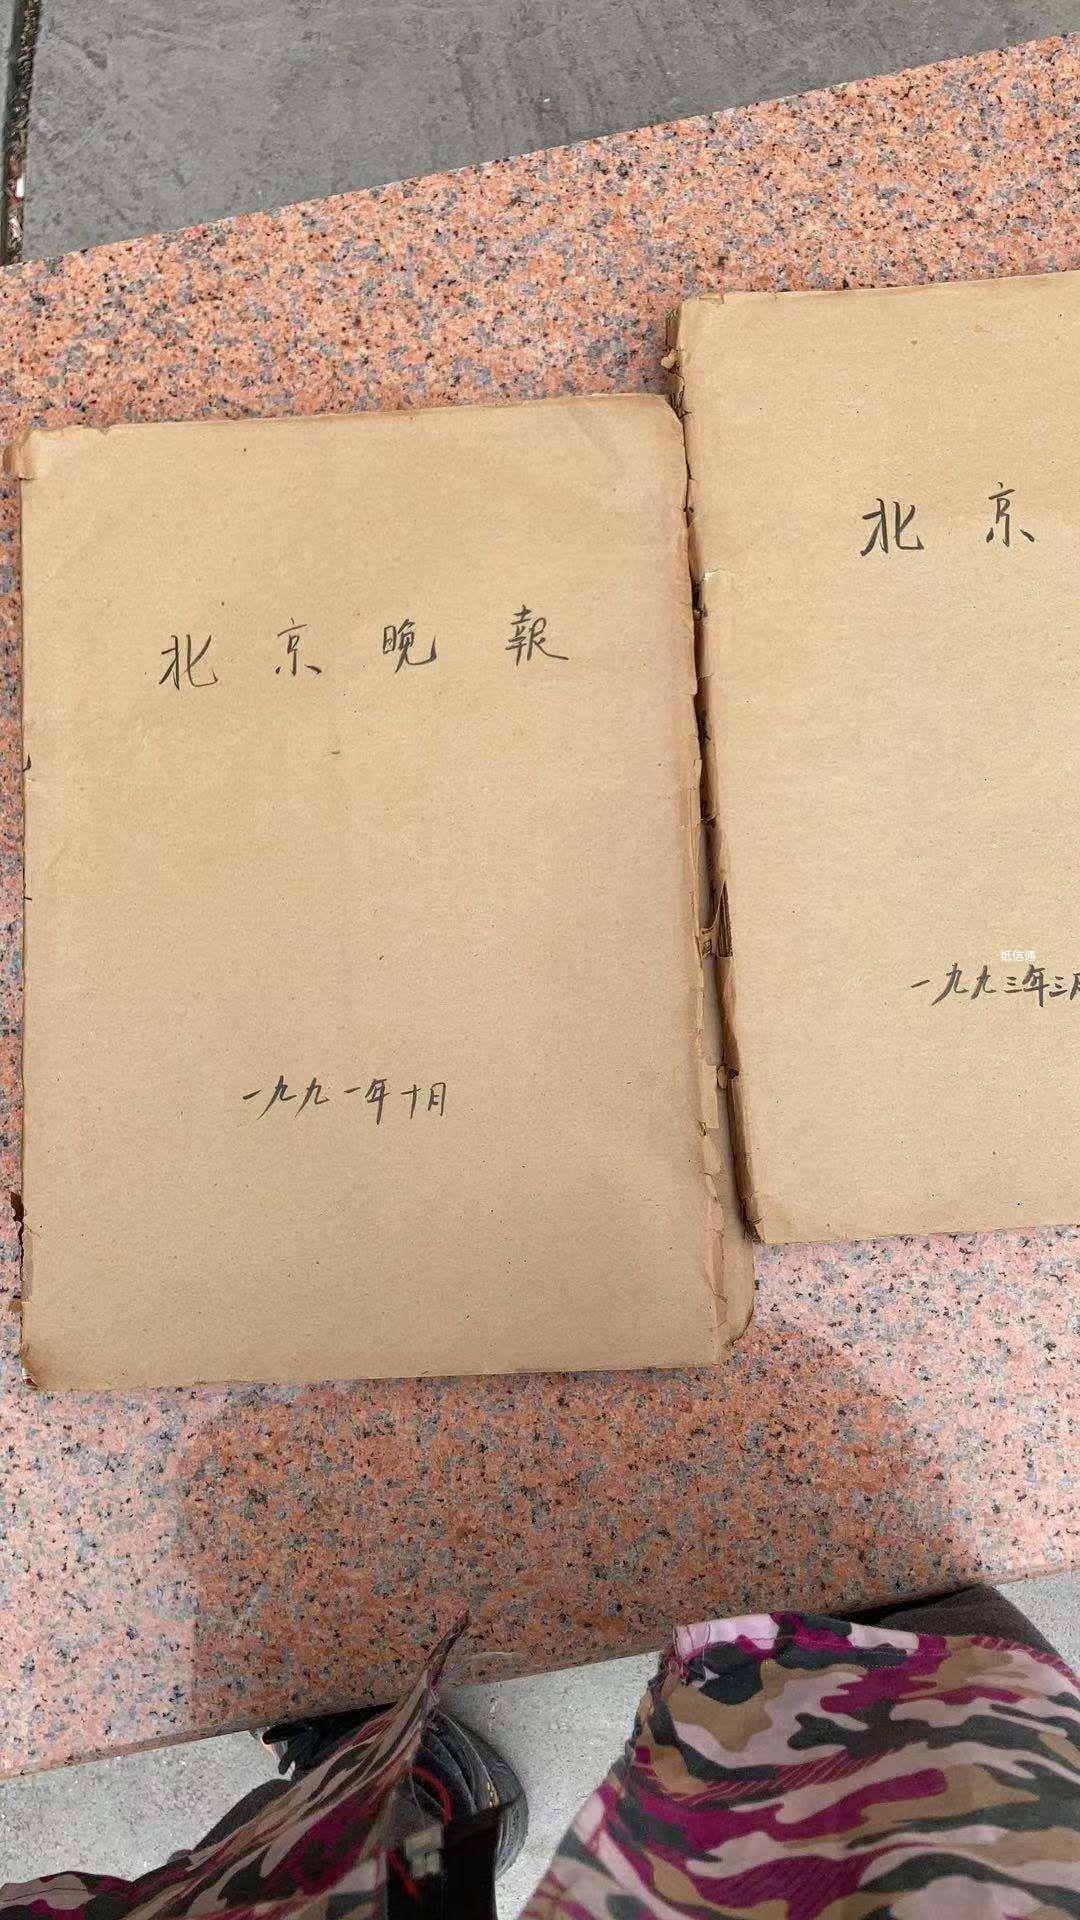 北京晚報
一九九一年十月
北京
纸信通
一九九三年三月